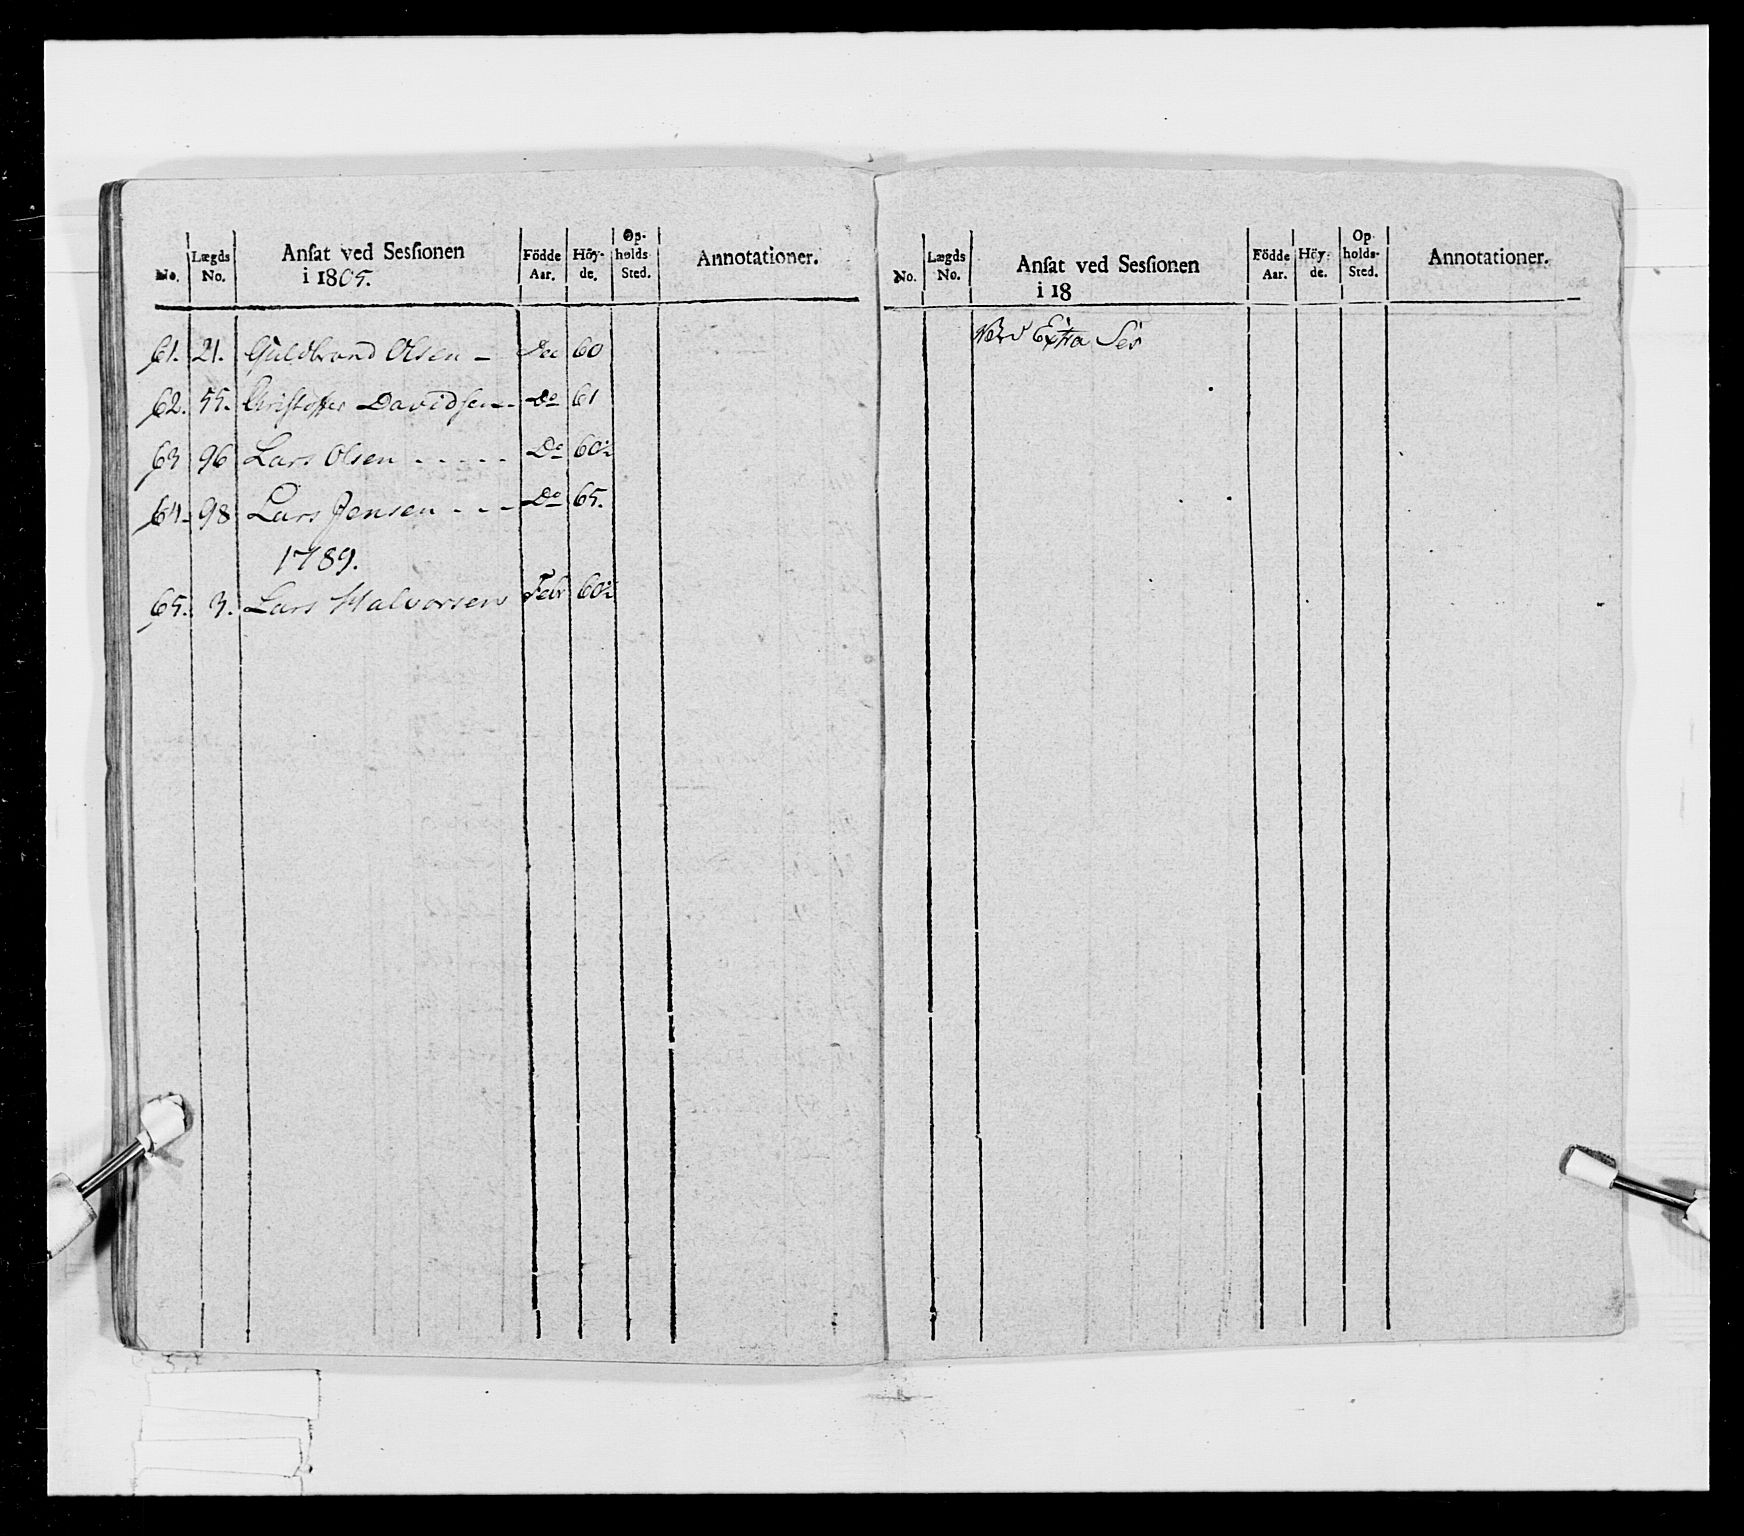 No. Lægds No. Ansat ved Sessionen i 1805. Födde Aar. Höy-de. Op-holds-Sted. Annotationer.
61. 21. Guldbrand Olsen - Dec 60
62. 55. Christoffer Davidsen - - Do 61
63 96 Lars Olsen - - - - - Do 60½
64. 98 Lars Jensen - - - Do 65.
1789.
65. 3. Lars Halvorsen Febr 60½
No. Lægds No. Ansat ved Sessionen i 18 Födde Aar. Höy-de. Op holds-Sted. Annotationer.
Ved Extra Ses